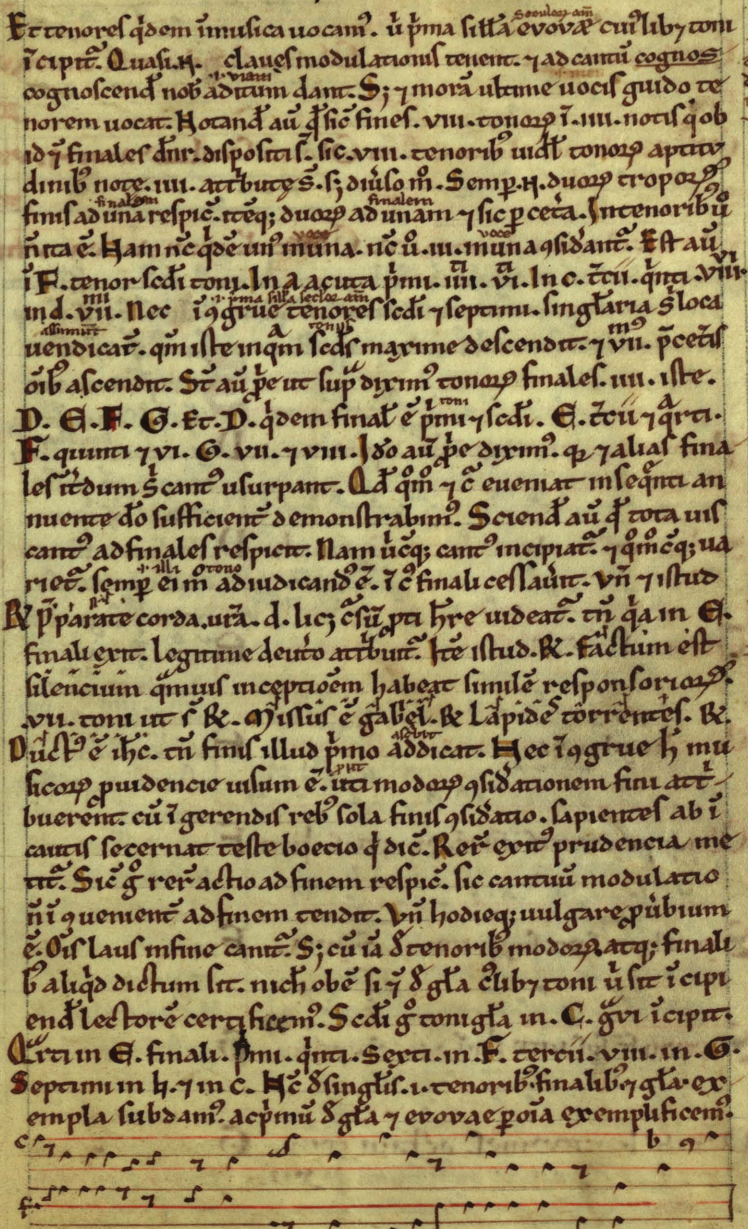 Et tenores q̇dem ī musica vocam᷒. ū p̄ma sillā evovæ cui᷒libꝫ toni
īcipit᷑. Quasi .n. claves modulationis tenent. ⁊ ad cantū cognos
cognoscend̄ nob̄ aditum dant. Sꝫ ⁊ morā ultime vocis guido te
norem vocat. Notand̄ aū q̄ sic̄ fines .viii. tonoꝝ ī .iiii. notis q̇ ob
id ⁊ finales dn̄r. dispositi s̄. sic .viii. tenorib᷒ uid̄l tonoꝝ aptitu
dinib᷒ note .iiii. att̄bute s̄. sꝫ div̄so m̊. Semꝑ .n. duoꝝ tropoꝝ
finis ad una respic̄. itēqꝫ duoꝝ ad unam ⁊ sic ꝑ cet̄a. In tenorib᷒ ū
n̄ ita ē. Nam nc̄ q̇dē un᷒ in una. nc̄ ů .iii. in una ꝯsid̄ant᷑. Est aū
ī F. tenor sc̄di toni. In a acuta p̄mi. iiii. vi. In c. t̄cii. q̇nti. viii
in d. vii. Nec īꝯgrue tenores sc̄di ⁊ septimi. singl̄aria s̄ loca
vendicat᷑. qm̄ iste inqm̄ sc̄ds maxime descendit. ⁊ vii. p̄ cet̄is
oīb᷒ ascendit. St̄ aū p̄e ut sup̄ dixim᷒ tonoꝝ finales .iiii. iste.
D. E. F. G. Et. D. q̇dem final̄ ē p̄mi ⁊ sc̄di. E. t̄cii ⁊ q̄rti.
F. quinti ⁊ vi. G. vii. ⁊ viii. Id̊o aū p̄e dixim᷒. qꝛ ⁊ alias fina
les int̄dum s̄ cant᷒ usurpant. Qd̄ qm̊ ⁊ c̄ eveniat in seq̄nti an
nuente d̊o sufficient᷑ demonstrabim᷒. Sciend̄ aū q̄ tota vis
cant᷒ ad finales respicit. Nam ūc̄qꝫ cant᷒ incipiat᷑. ⁊ qm̊c̄qꝫ va
riet᷑. semꝑ ei m̊ adiudicand᷒ ē. ī c̊ finali cessav̄it. Vn̄ ⁊ istud
℞ p̄parate corda vr̄a. d. licꝫ c̄sū ꝓti hr̄e videat᷑. tn̄ q̇a in E.
finali exit. legitime deut̊o att̄buit᷑. Itē istud. ℞. Factum est
silencium q̄mvis inceptioēm habeat similē responsorioꝝ.
.vii. toni ut s̄ ℞. Missus ē gabel. ℞ Lapidē torrentes. ℞.
Duct᷒ ē ihc̄. tn̄ finis illud p̄mo addicat. Nec īꝯgrue h̄ mu
sicoꝝ ꝓvidencie visum ē. uti modoꝝ ꝯsid̄ationem fini att̄
buerent. cū ī gerendis reb᷒ sola finis ꝯsid̄atio. sapientes ab ī
cautis secernat teste boecio q̇ dic̄. Rer̄ exit᷒ prudencia me
tit᷑. Sic̄ g̊ rer̄ actio ad finem respic̄. sic cantuū modulatio
n̄ īꝯvenient᷑ ad finem tendit. Vn̄ hodieqꝫ vulgare ꝓv̄bium
ē. Oīs laus in fine canit᷑. Sꝫ cū iā d̄ tenorib᷒ modoꝝ atqꝫ finali
b᷒ aliq̇d dictum sit. nich̄ obē si ⁊ d̄ gl̄a c᷒libꝫ toni ū sit īcipi
end̄ lectorē certificem᷒. Sc̄di g̊ toni gl̄a in. C. g̊vi īcipit.
Q̄rti in E. finali. p̄mi. q̇nti. Sexti. in. F. tercii. viii. in. G.
Septimi in h. ⁊ in c. Nc̄ d̄ singl̄is .i. tenorib᷒. finalib᷒ ⁊ gl̄a. ex
empla subdam᷒. ac p̄mū d̄ gl̄a ⁊ evovae ꝑ oīa exemplificem᷒.